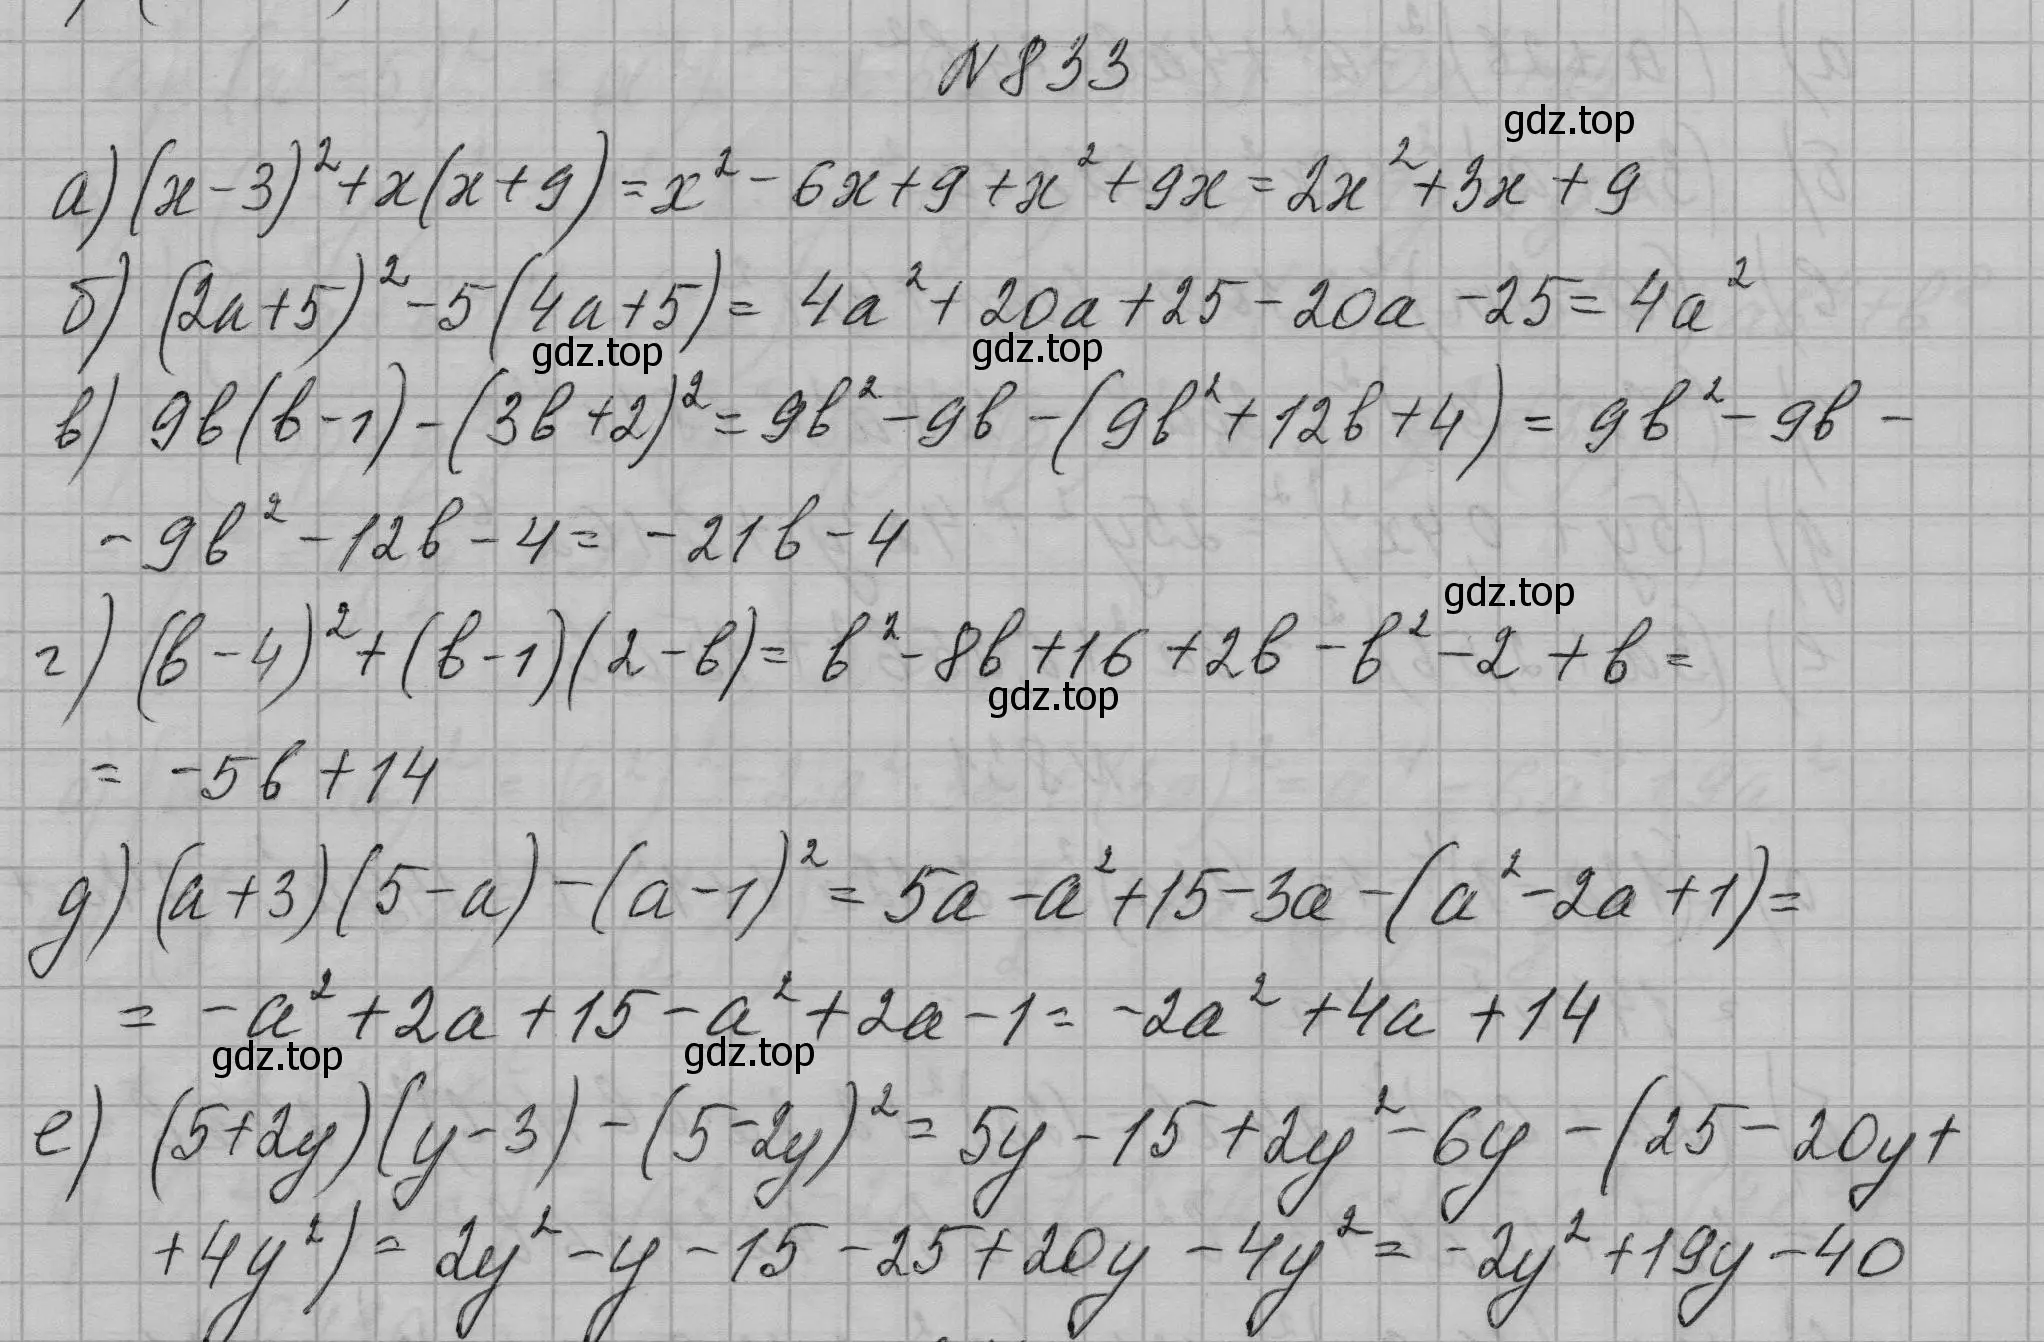 N 833
gdz.top
а) (x-3)² + x(x+9) = x² - 6x + 9 + x² + 9x = 2x² + 3x + 9
б) (2a+5)² - 5(4a+5) = 4a² + 20a + 25 - 20a - 25 = 4a²
gdz.top gdz.top
в) 9b(b-1) - (3b+2)² = 9b² - 9b - (9b² + 12b + 4) = 9b² - 9b -
- 9b² - 12b - 4 = -21b - 4
gdz.top
г) (b-4)² + (b-1)(2-b) = b² - 8b + 16 + 2b - b² - 2 + b =
gdz.top
= -5b + 14
д) (a+3)(5-a) - (a-1)² = 5a - a² + 15 - 3a - (a² - 2a + 1) =
= -a² + 2a + 15 - a² + 2a - 1 = -2a² + 4a + 14
gdz.top gdz.top
е) (5+2y)(y-3) - (5-2y)² = 5y - 15 + 2y² - 6y - (25 - 20y +
+ 4y²) = 2y² - y - 15 - 25 + 20y - 4y² = -2y² + 19y - 40